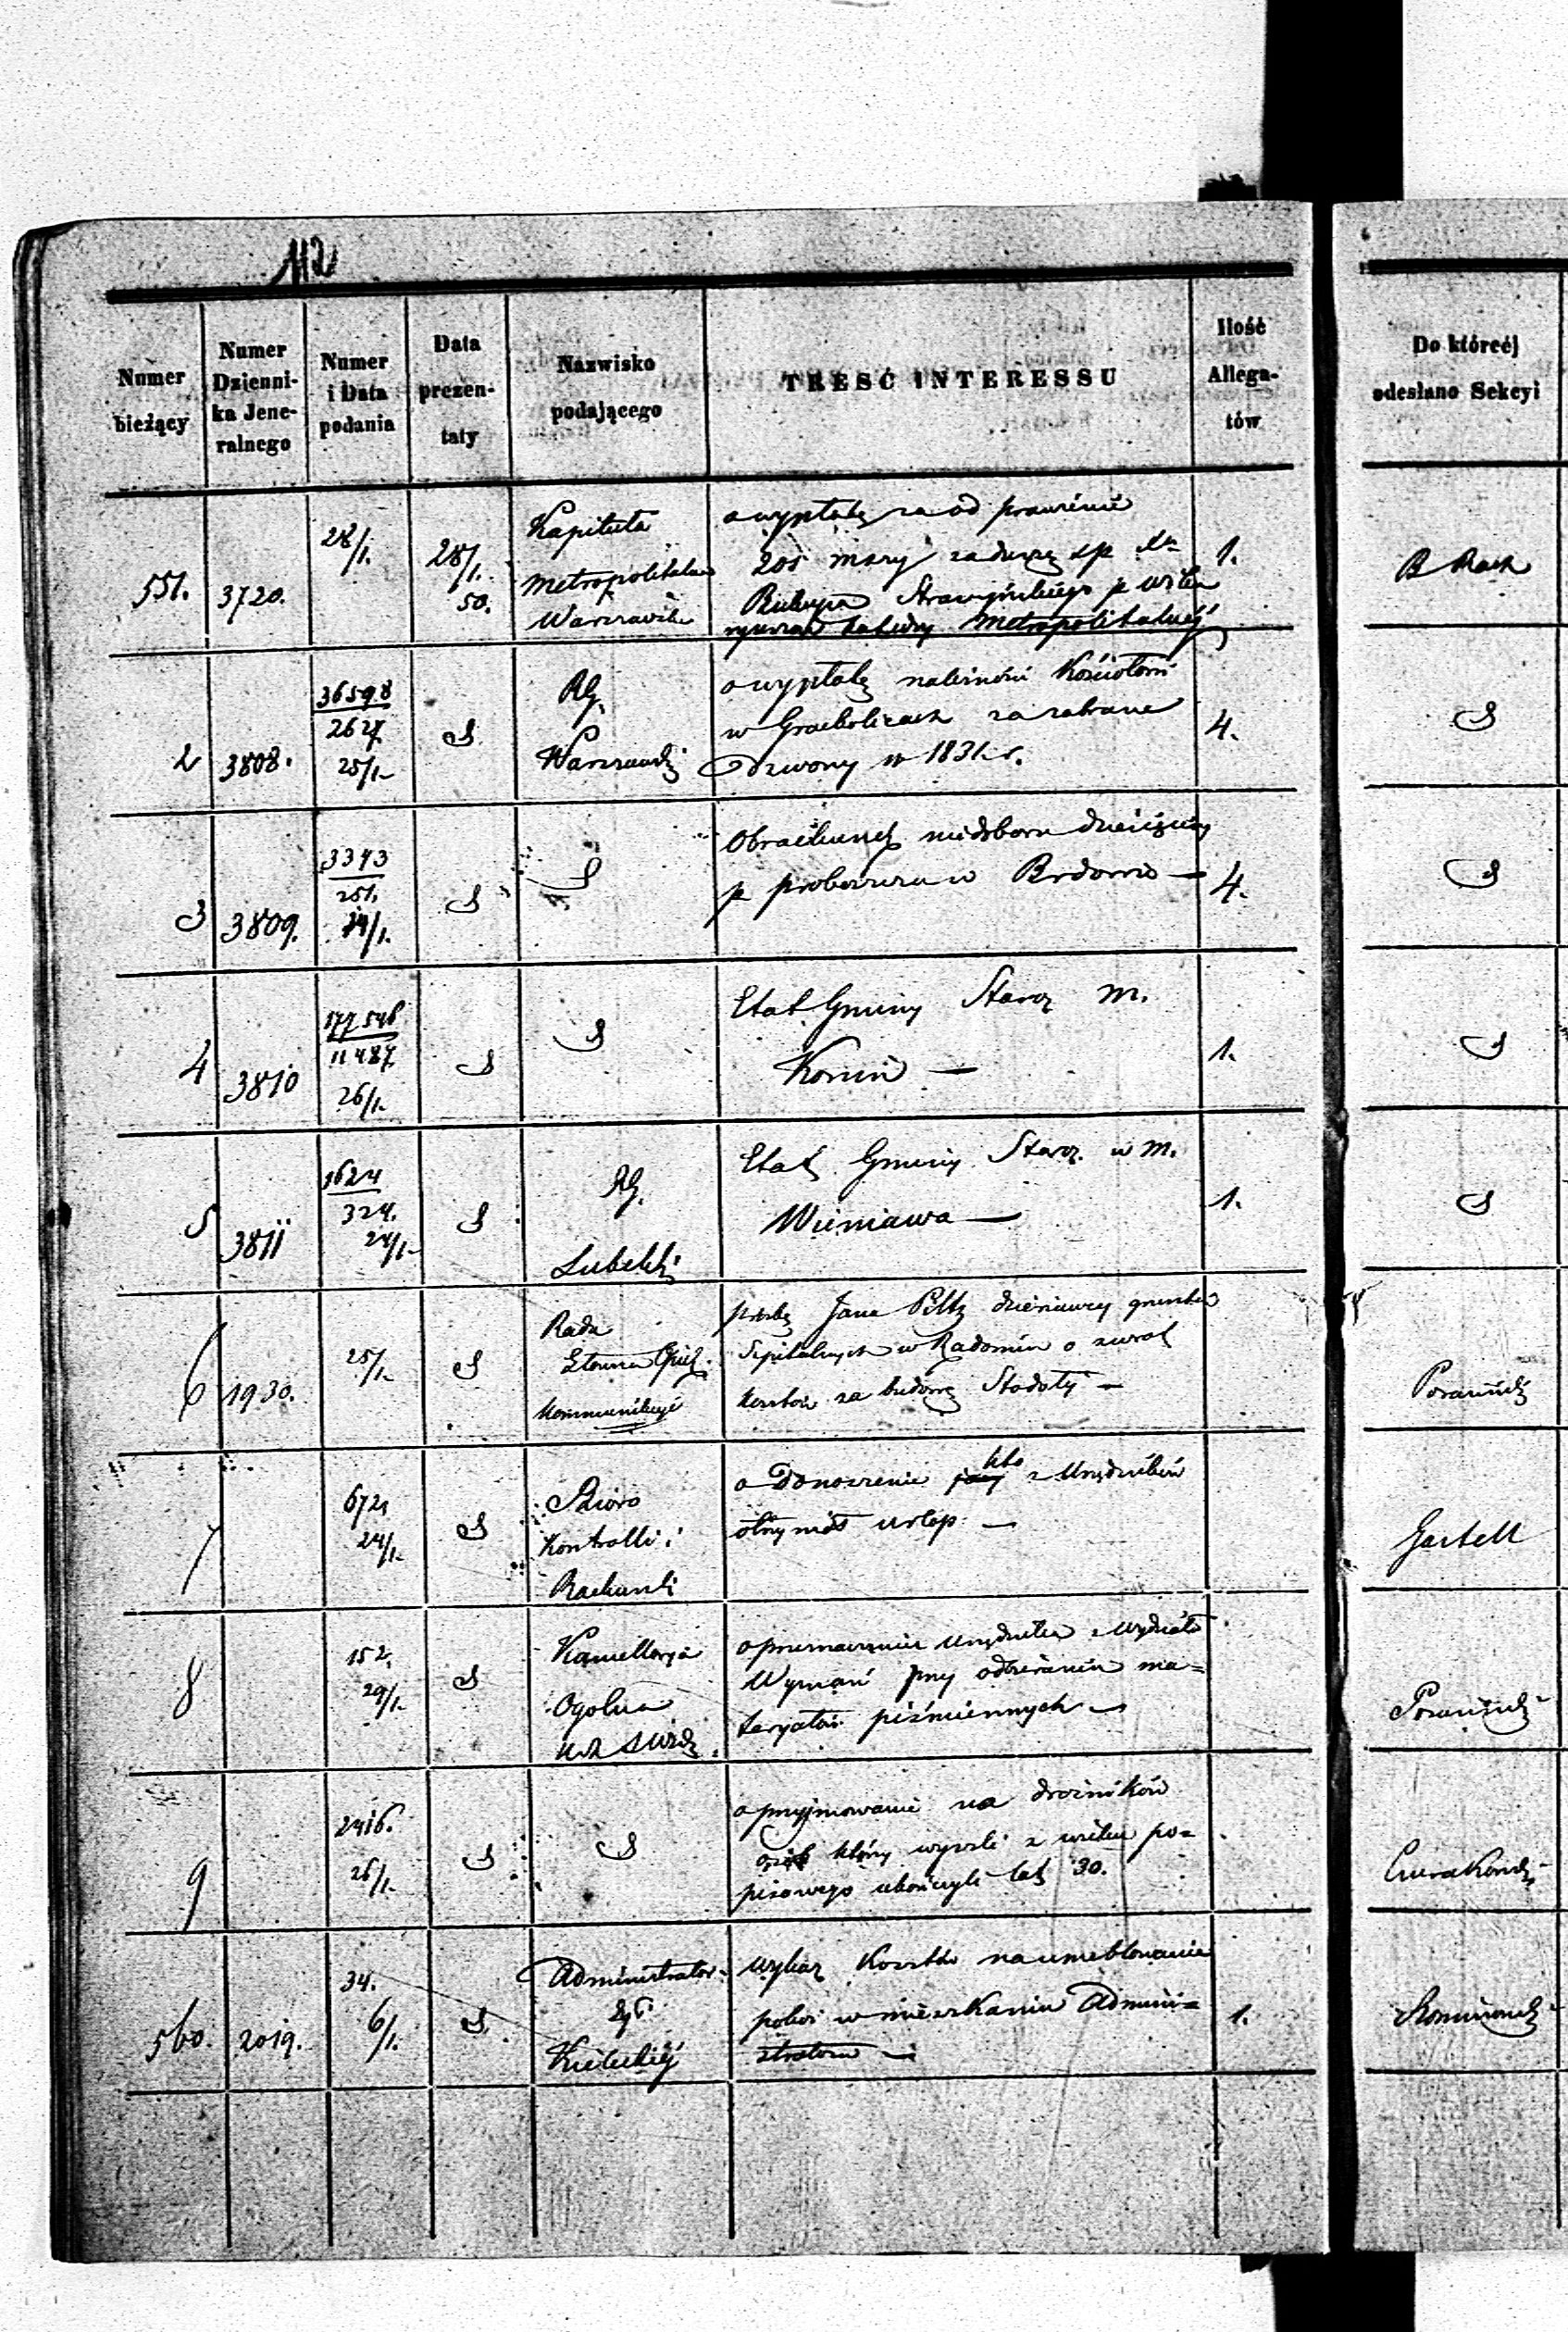 112
Numer bieżący
Numer Dziennika Jeneralnego
Numer i Data podania
Data prezentaty
Nazwisko podającego
TRESĆ INTERESSU
Ilość Allegatów
Do któreéj odesłano Sekcyi
551.
3720.
28/1.
28/1. 50.
Kapituła
Metropolitalna
Warszawska
o wypłatę za od prawienie
208 mszy za duszę sp
Biskupa p
Metropolitalnéj
1.
B Rach
2
3808.
36598
2627
25/1
S
RG.
Warszawski
o wypłatę należności Kościołowi
w za zabrane
Dzwony w 1831 r.
4.
S
3
3809.
3343
251.
24/1.
S
S
Obrachunek niedoboru dziesięciny
p proboszcza w Brdowie —
4.
S
4
3810
177546
11487
26/1.
S
S
Etat Gminy Staroz m.
Konin —
1.
S
5
3811
1624
324.
24/1
S
RG.
Lubelski
Etat Gminy Staroz. w m.
Wieniawa —
1.
S
6
1930.
25/1
S
Rada
Główna Opiek.
kommunikuje
prośbę Jana dzierżawcy gruntów
Szpitalnych w Radomiu o zwrot
kosztów za budowę Stodoły —
7
672
24/1
S
Bióro
Kontrolli i
Rachunk
o Donoszenie kto z Urzędników
otrzymał urlop. —
8
152
29/1
S
Kancellarya
Ogolna
o przeznaczenie urzędnika z Wydziału
Wyznań przy odbieraniu ma=
teryałów piśmiennych —
9
2416.
26/1
S
S
o przyjmowanie na drożników
osób którzy wyszli z wieku po=
pisowego ukończyli lat 30.
560.
2019.
34.
6/1.
S
Administrator
Kieleckiéj
wykaz Kosztów na umeblowanie
pokoi w mieszkaniu Admini=
stratora —
1.